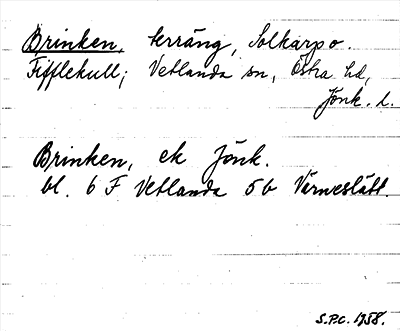 Brinken, terräng, Solkarp o.
Fifflekull; Vetlanda sn, Östra hd,
Jönk. l.
Brinken, ek Jönk.
bl. 6 F Vetlanda 5 b Värneslätt.
S.P.C. 1958.